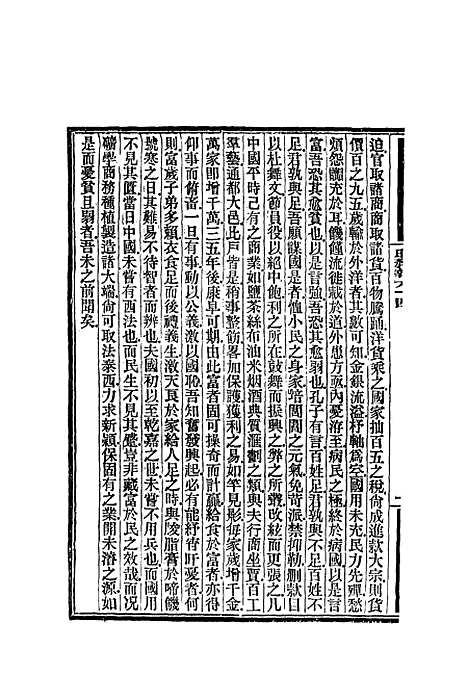 迫官取諸商商取諸貨百物騰踊洋貨乘之國家抽百五之稅尚成進款大宗則貨
價百之九五歲輸於外洋者其數可知金銀流溢杼軸為空國用未充民力先殫愁
煩怨讟充於耳饑饉流徙載於道外患方亟內憂洊至病民之極終於病國以是言
富吾恐其愈貧也以是言強吾恐其愈弱也孔子有言百姓足君孰與不足百姓不
足君孰與足吾願謀國是者恤小民之身家培閭閻之元氣免苛派禁抑勒刪款目
以杜舞文節員役以絕中飽利之所在鼓舞而振興之弊之所叢改絃而更張之凡
中國平時己有之商業如鹽茶絲布油米烟酒典質滙劃之類與夫行商坐賈百工
羣藝通都大邑此戶皆是稍事整飭畧加保護獲利之易如竿見影每家歲增千金
萬家即增千萬三五年後康阜可期由此富者固可操奇而計贏給食於富者亦得
仰事而俯育一旦有事動以公義激以國恥吾知奮發興起必有能紓肝憂者何
則富歲子弟多賴衣食足而後禮義生激天良於家給人足之時與陵脂膏於啼饑
號寒之日其難易不待智者而辨也夫國初以至乾嘉之世未嘗不用兵也而國用
不見其匱當旧中國未嘗有西法也而民生不見其蹙豈非藏富於民之效哉而况
礦學商務種植製造諸大端尚可取法泰西力求新穎保固有之業開未濬之源如
是而憂貧且弱者吾未之前聞矣